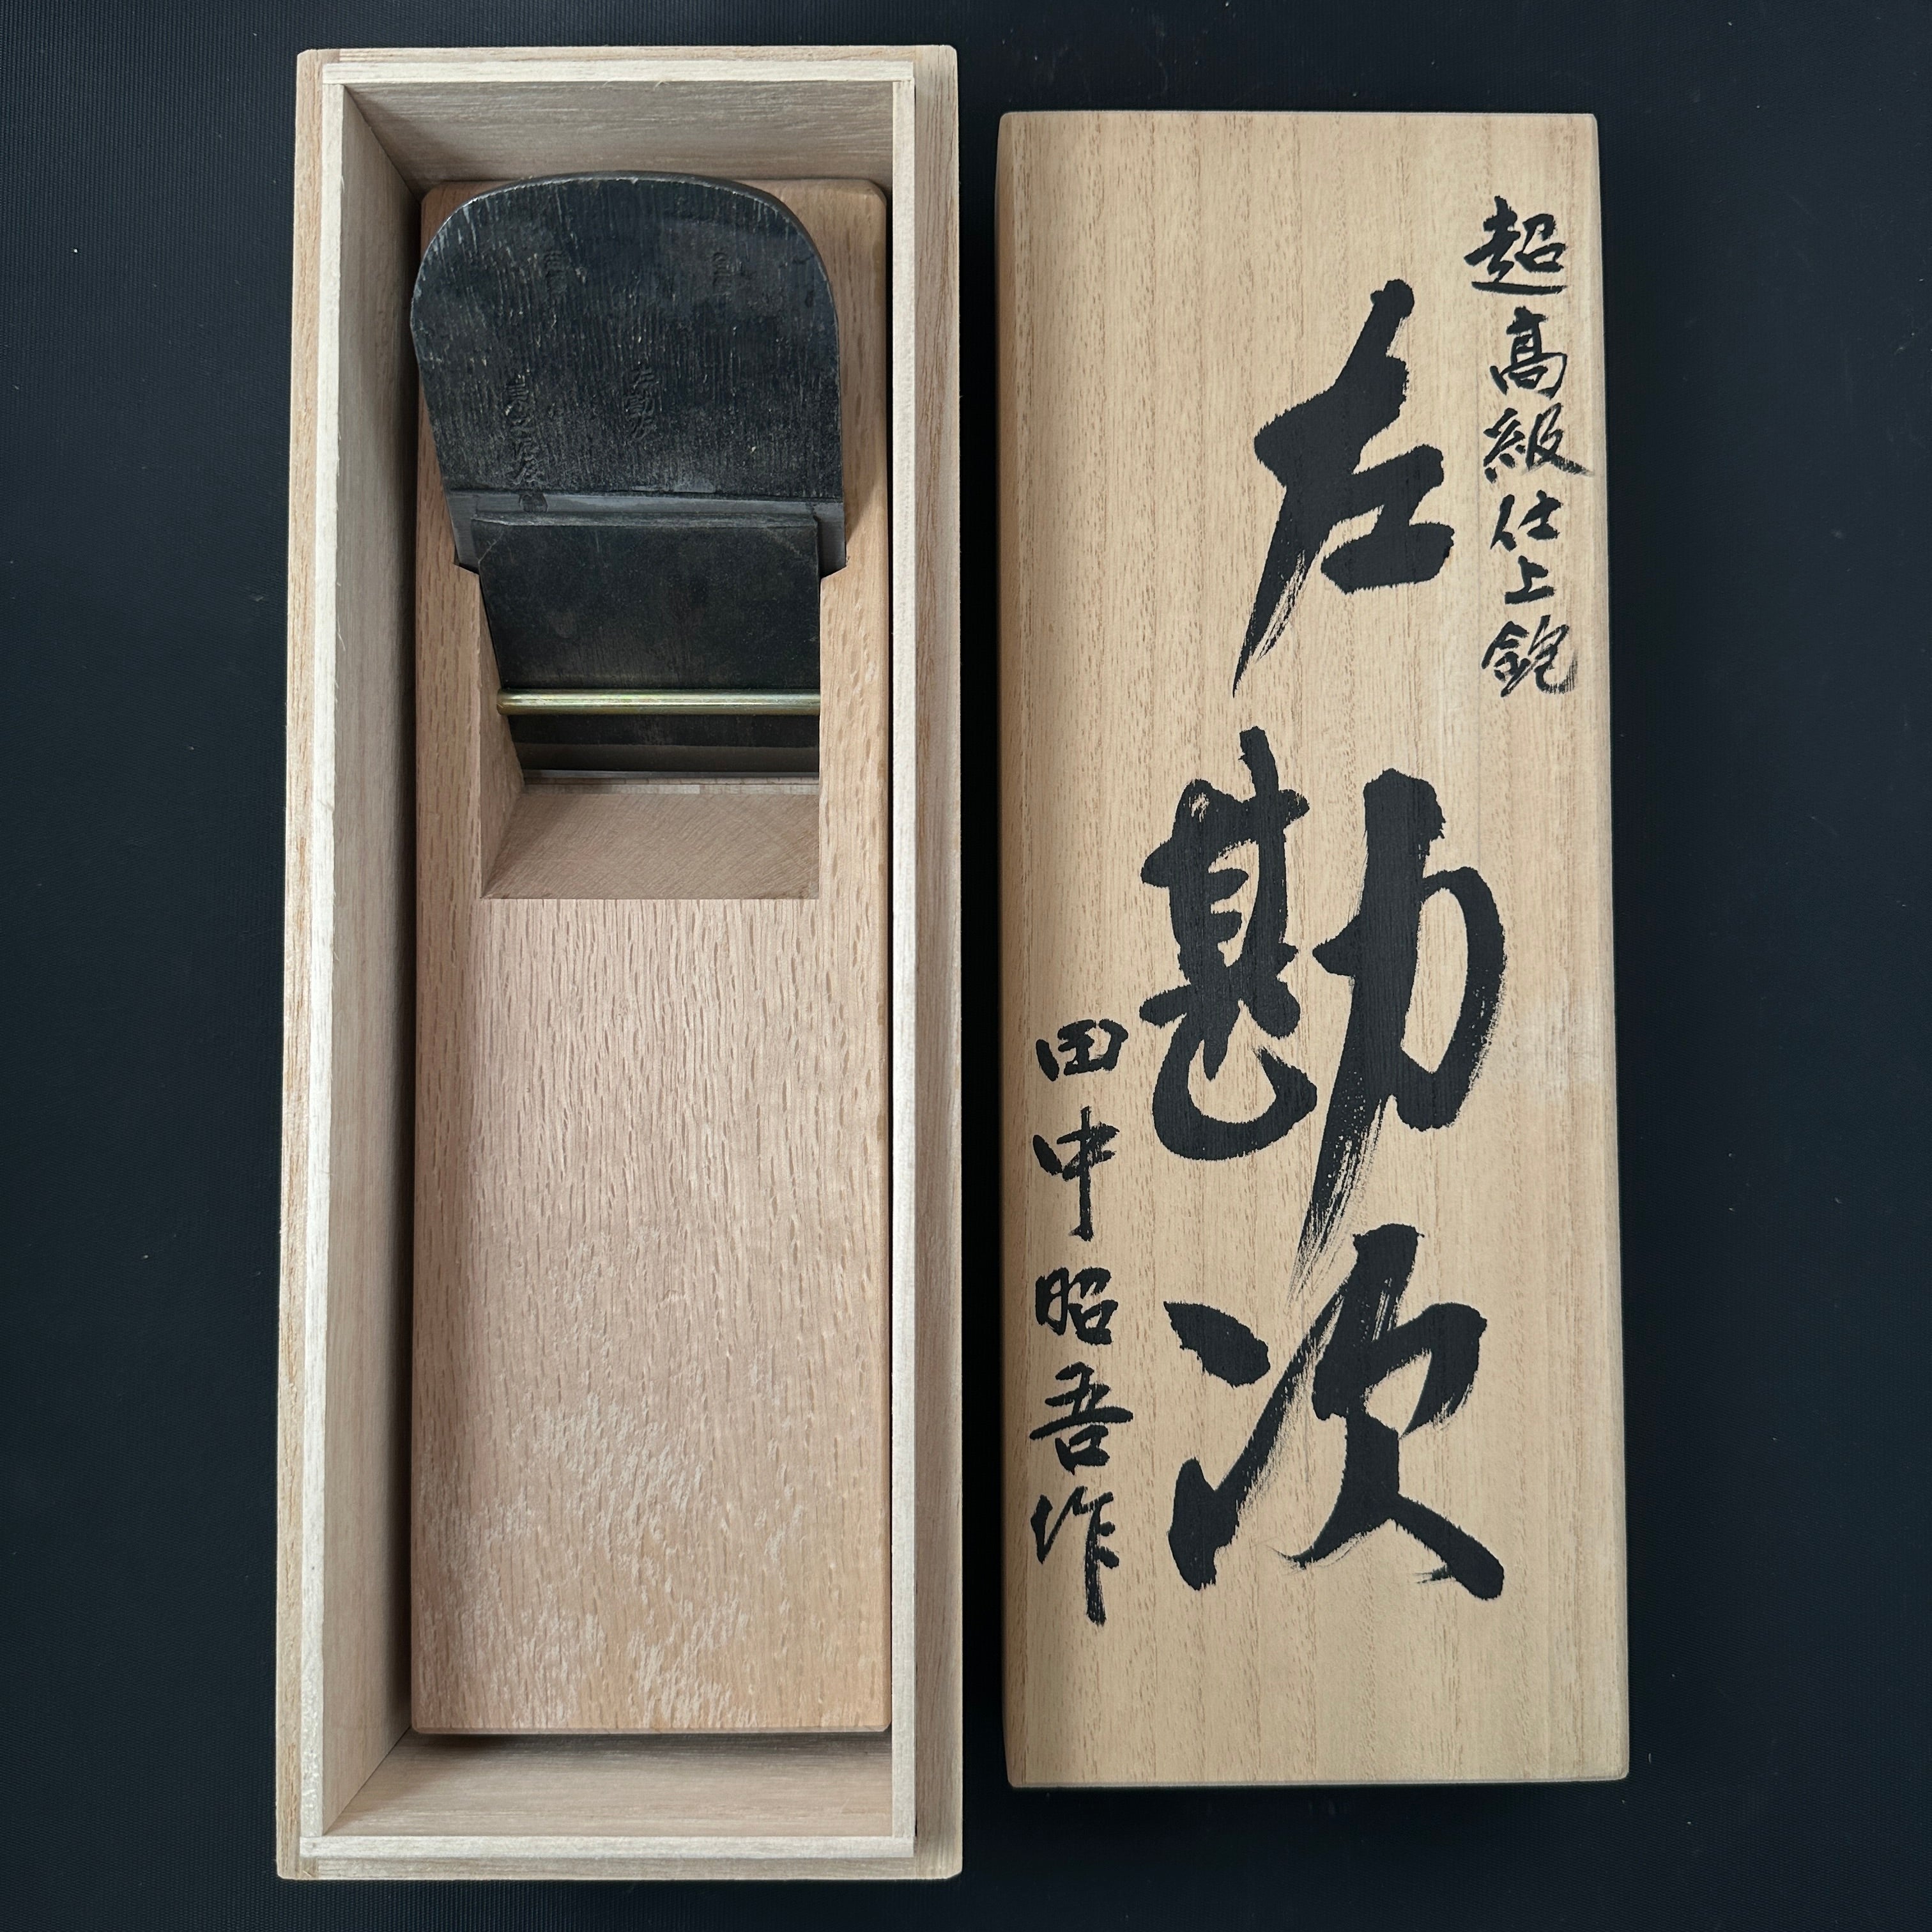 超高級仕上鉋
左勘次
田中昭吾作